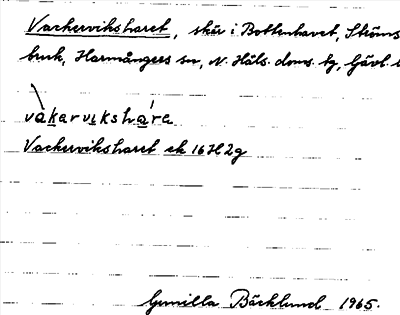 Vackervikshäret, skär i Bottenhavet, Ströms
bruk, Harmångers sn, N. Häls. doms. tg, Gävl.
vakervikshäre
Vackervikshäret ek 16H2g
Gunilla Bäcklund 1965.